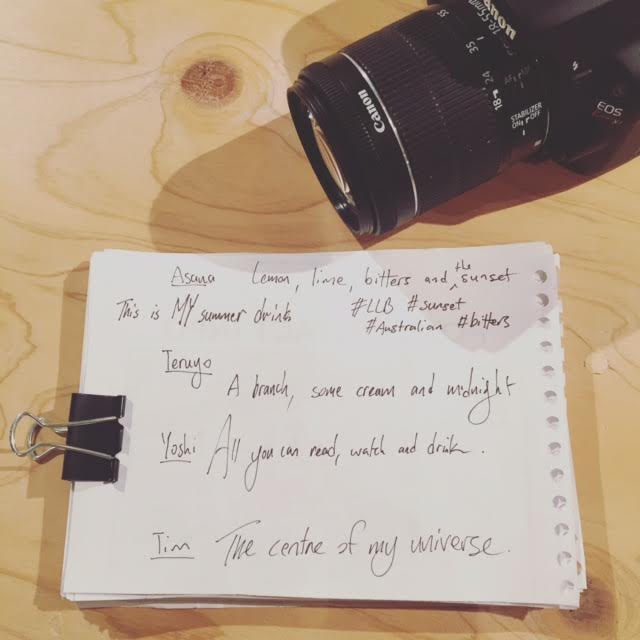 Canon
Canon
18-55mm
55
35
24
18
STABILIZER
ON OFF
EOS
Asuna Lemon, lime, bitters and the sunset
This is MY summer drink
#LLB #sunset
#Australian #bitters
Teruyo
A branch, some cream and midnight
Yoshi All you can read, watch and drink.
Tim The centre of my universe.